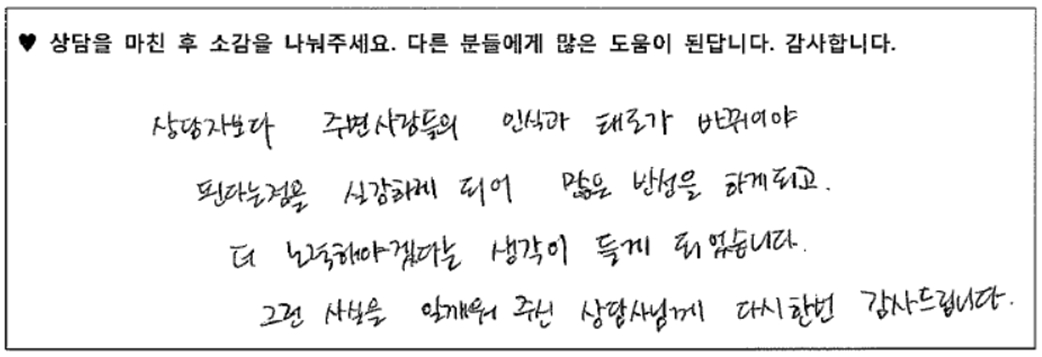 ♥ 상담을 마친 후 소감을 나눠주세요. 다른 분들에게 많은 도움이 된답니다. 감사합니다.
상담자보다 주변사람들의 인식과 태도가 바뀌어야
된다는점을 실감하게 되어 많은 반성을 하게되고.
더 노력해야겠다는 생각이 들게 되었습니다.
그런 사실을 일깨워 주신 상담사님께 다시한번 감사드립니다.